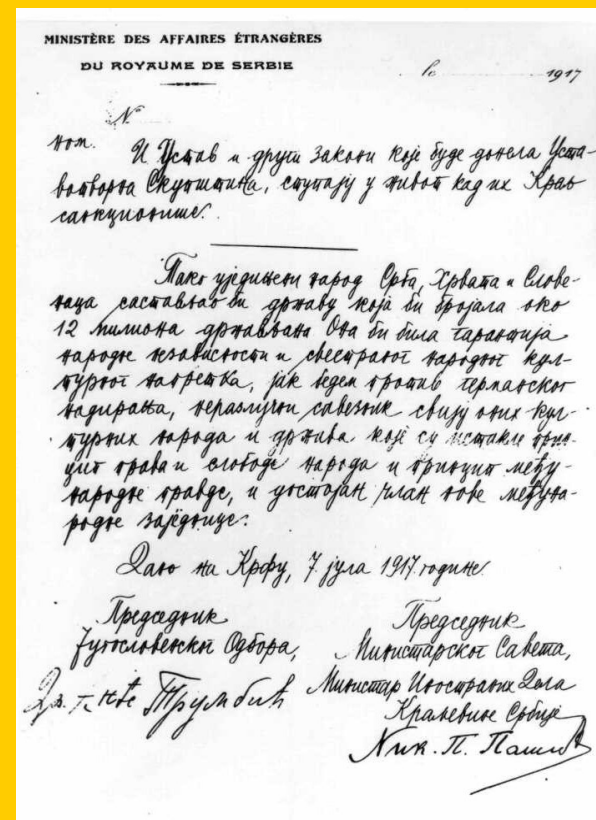 MINISTÈRE DES AFFAIRES ÉTRANGÈRES
DU ROYAUME DE SERBIE
le 1917
N°
ном. И Устав и други закони које буде донела Уста-
вотворна Скупштина, ступају у живот кад их Краљ
санкционише.
Тако уједињени народ Срба, Хрвата и Слове-
наца састављао би државу која би бројала око
12 милиона држављана. Она би била гаранција
народне независности и свестраног народног кул-
турног напретка, јак бедем против германског
надирања, неразлучни савезник свију оних кул-
турних народа и држава које су истакле прин-
цип права и слободе народа и принцип међу-
народне правде, и достојан члан нове међуна-
родне заједнице.
Дано на Крфу, 7. јула 1917. године.
Председник
Југословенског Одбора,
Др. Трумбић
Председник
Министарског Савета,
Министар Иностраних Дела
Краљевине Србије
Ник. П. Пашић